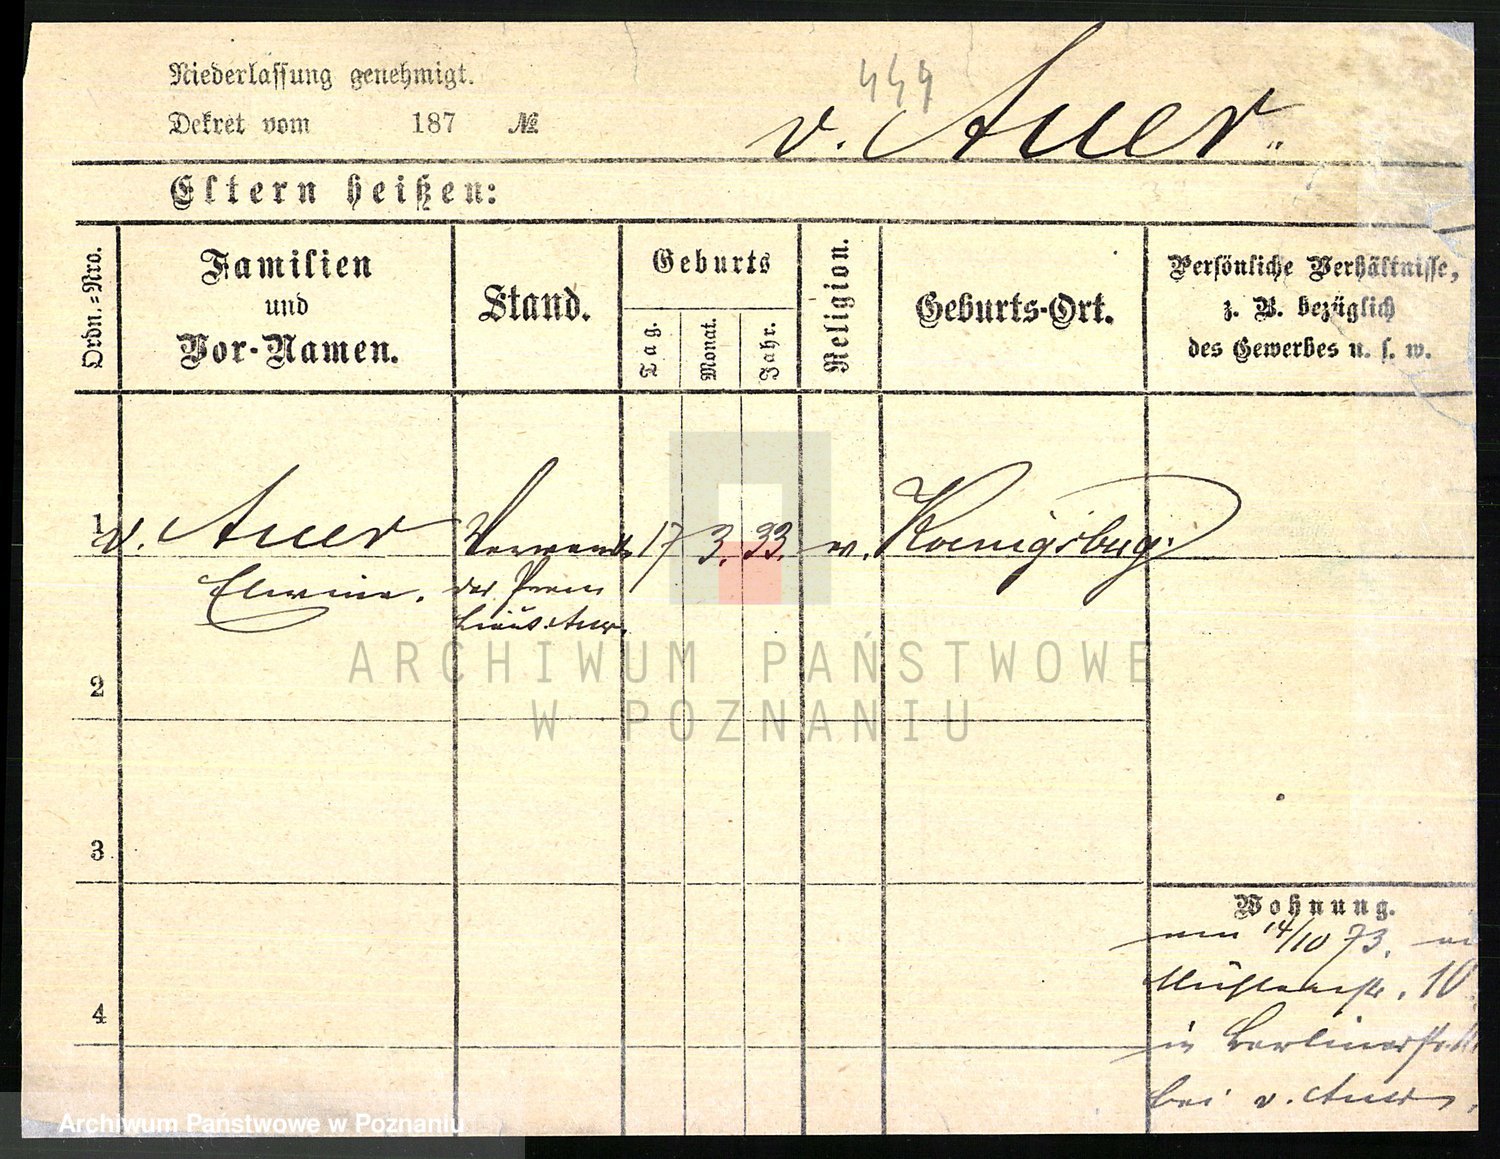 Niederlassung genehmigt.
449
Dekret vom 187 №
v. Auer.
Eltern heißen:
Ordn.=Nro.
Familien
und
Vor-Namen.
Stand.
Geburts
Tag.
Monat.
Jahr.
Religion.
Geburts-Ort.
Persönliche Verhältnisse,
z. B. bezüglich
des Gewerbes u. s. w.
1
v. Auer
17 3. 33.
Koenigsburg.
der Prem
ARCHIWUM PAŃSTWOWE
W POZNANIU
2
3
4
Wohnung.
14/10 73.
Mühlenstr. 10.
in Berlinerstr.
bei v. Auer
Archiwum Państwowe w Poznaniu